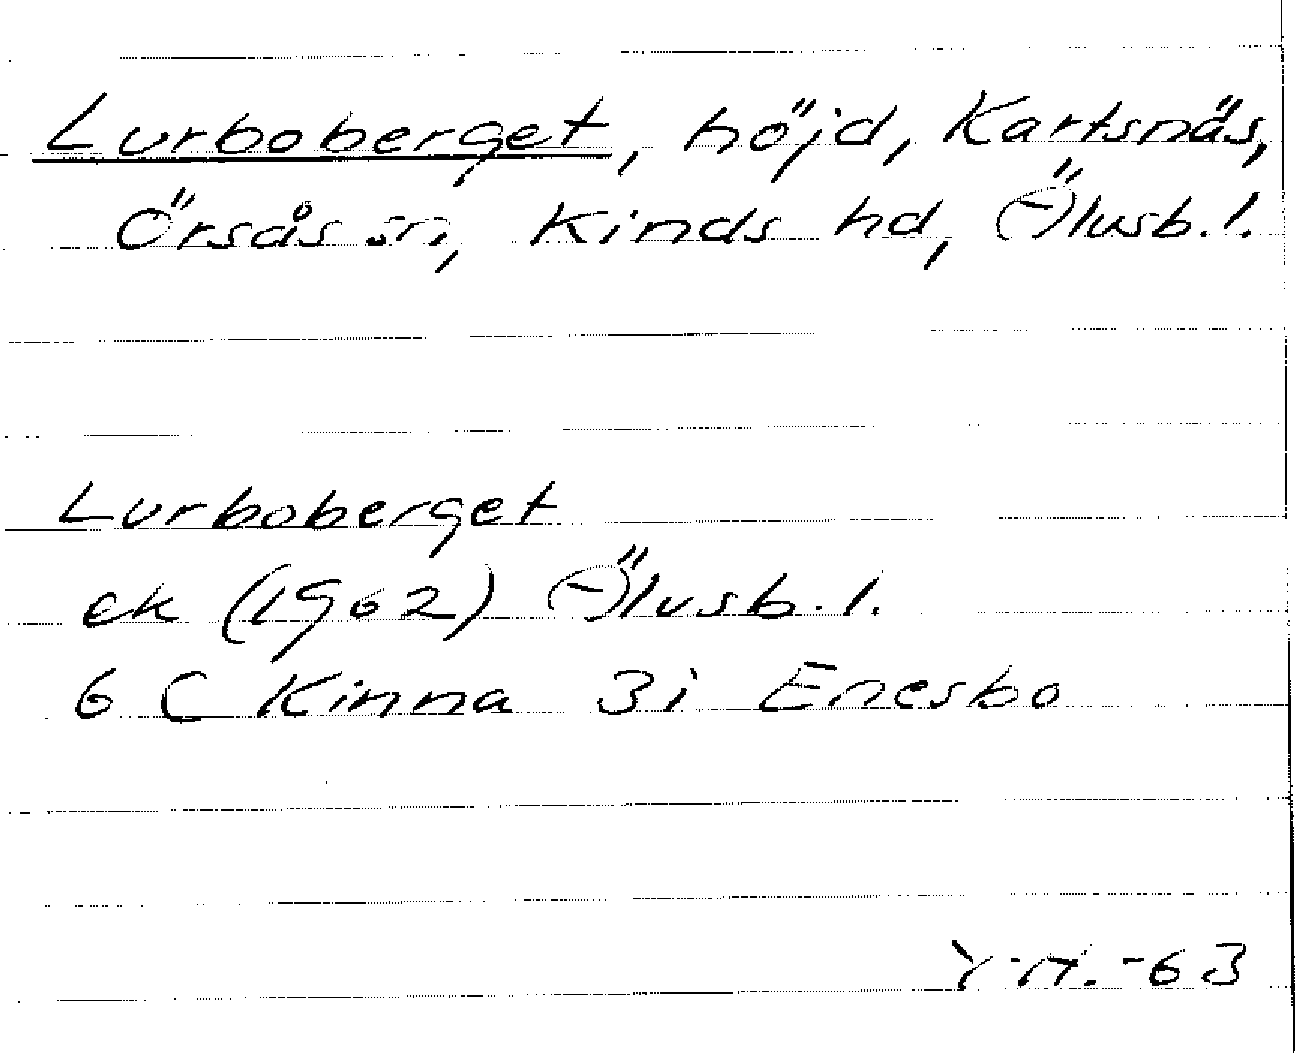 Lurboberget, höjd, Kartsnäs,
Örsås sn, Kinds hd, Älvsb. l.
Lurboberget
ek (1962) Älvsb. l.
6 C Kinna 3i Enesbo
-63